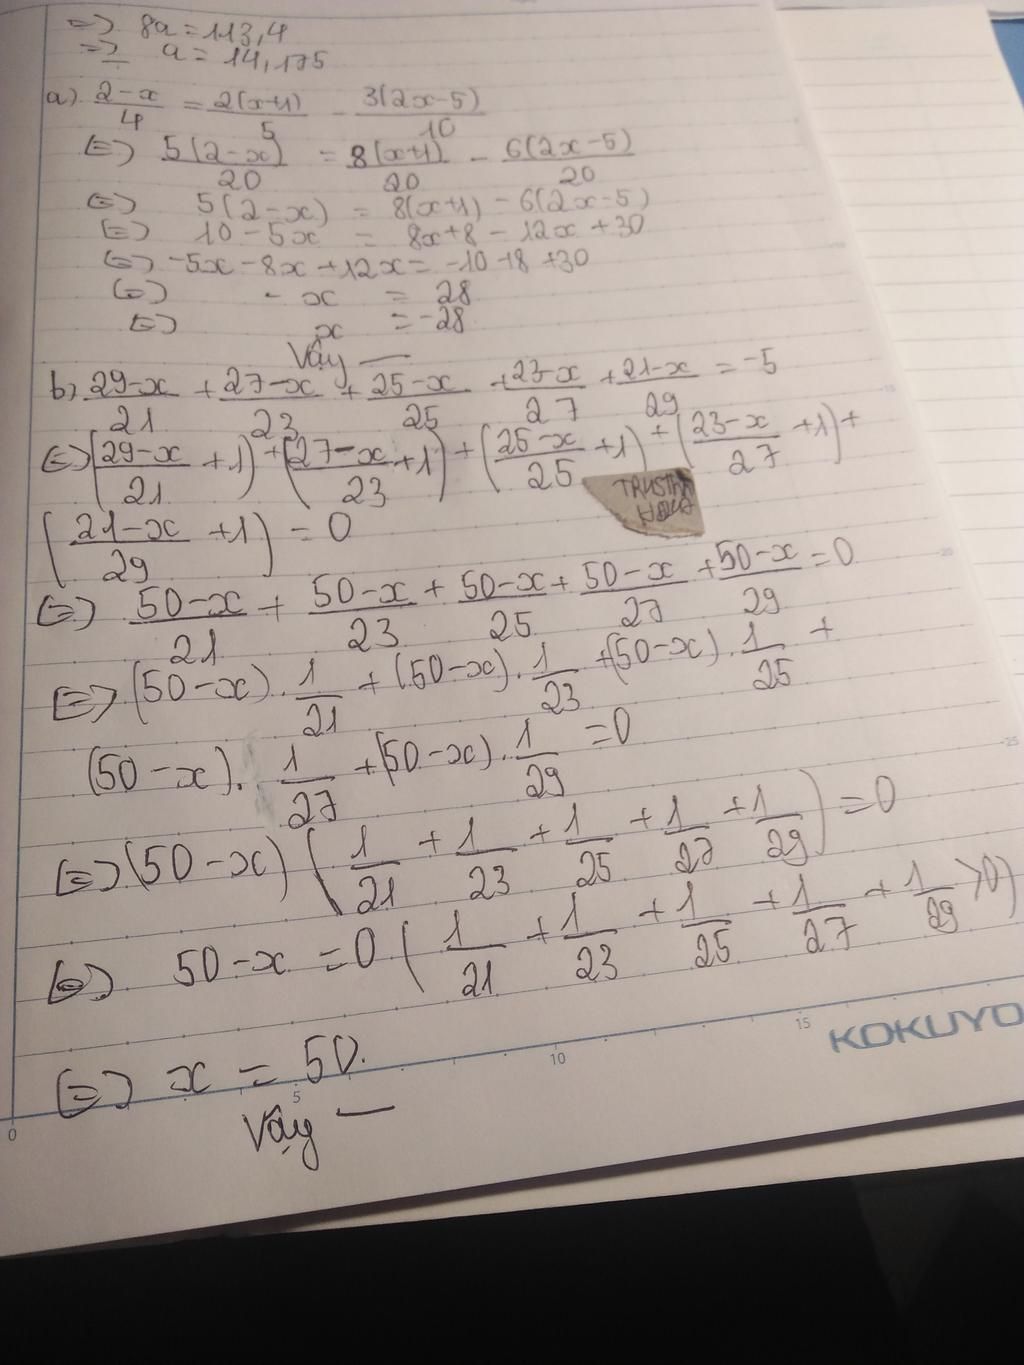 => 8a = 113,4
=> a = 14,175
a) \frac{2-x}{4} = \frac{2(x+1)}{5} - \frac{3(2x-5)}{10}
<=> \frac{5(2-x)}{20} = \frac{8(x+1)}{20} - \frac{6(2x-5)}{20}
<=> 5(2-x) = 8(x+1) - 6(2x-5)
<=> 10 - 5x = 8x + 8 - 12x + 30
<=> -5x - 8x + 12x = -10 + 8 + 30
<=> - x = 28
<=> x = -28
Vậy —
b) \frac{29-x}{21} + \frac{27-x}{23} + \frac{25-x}{25} + \frac{23-x}{27} + \frac{21-x}{29} = -5
<=> (\frac{29-x}{21} + 1) + (\frac{27-x}{23} + 1) + (\frac{25-x}{25} + 1) + (\frac{23-x}{27} + 1) +
(\frac{21-x}{29} + 1) = 0
<=> \frac{50-x}{21} + \frac{50-x}{23} + \frac{50-x}{25} + \frac{50-x}{27} + \frac{50-x}{29} = 0
<=> (50-x) . \frac{1}{21} + (50-x) . \frac{1}{23} + (50-x) . \frac{1}{25} +
(50-x) . \frac{1}{27} + (50-x) . \frac{1}{29} = 0
<=> (50-x) (\frac{1}{21} + \frac{1}{23} + \frac{1}{25} + \frac{1}{27} + \frac{1}{29}) = 0
<=> 50-x = 0 (\frac{1}{21} + \frac{1}{23} + \frac{1}{25} + \frac{1}{27} + \frac{1}{29} > 0)
<=> x = 50.
Vậy —
KOKUYO
0 5 10 15